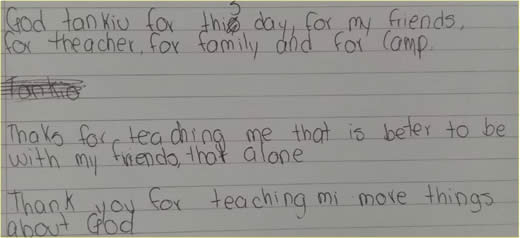 God tankiu for this day, for my friends,
for theacher, for family and for camp.
tankio
Thaks for teaching me that is beter to be
with my friends, that alone
Thank you for teaching mi more things
about God